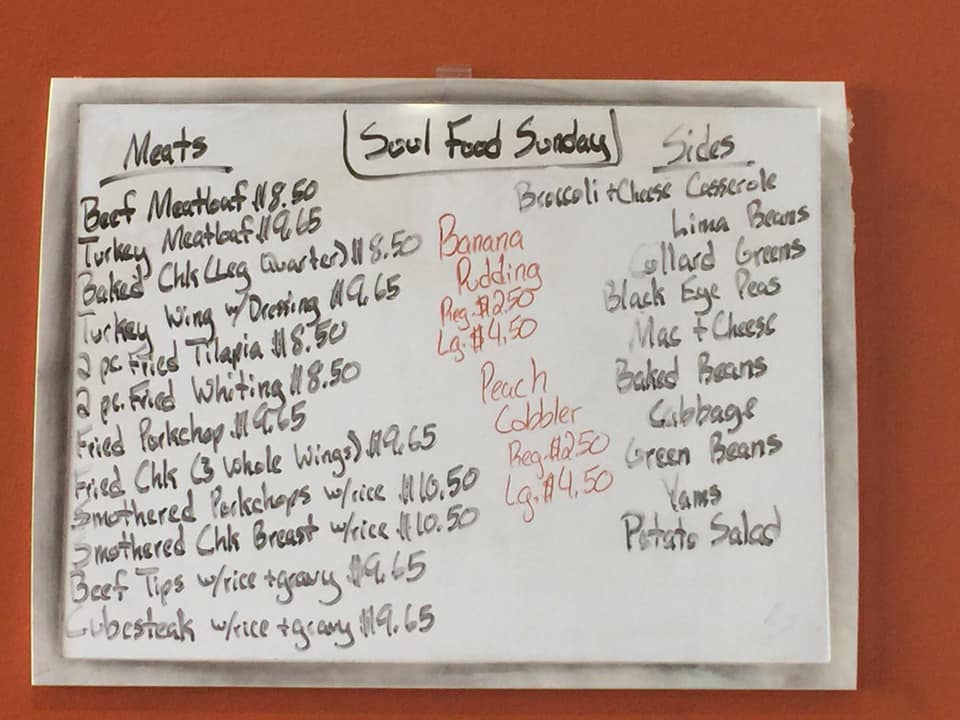 Soul Food Sunday
Meats
Beef Meatloaf $8.50
Turkey Meatloaf $9.65
Baked Chk (Leg Quarter) $8.50
Turkey Wing w/Dressing $9.65
2 pc. Fried Tilapia $8.50
2 pc. Fried Whiting $8.50
Fried Porkchop $9.65
Fried Chk (3 Whole Wings) $9.65
Smothered Porkchops w/rice $10.50
Smothered Chk Breast w/rice $10.50
Beef Tips w/rice + gravy $9.65
Cubesteak w/rice + gravy $9.65
Banana
Pudding
Reg. $2.50
Lg. $4.50
Peach
Cobbler
Reg. $2.50
Lg. $4.50
Sides
Broccoli + Cheese Casserole
Lima Beans
Collard Greens
Black Eye Peas
Mac + Cheese
Baked Beans
Cabbage
Green Beans
Yams
Potato Salad